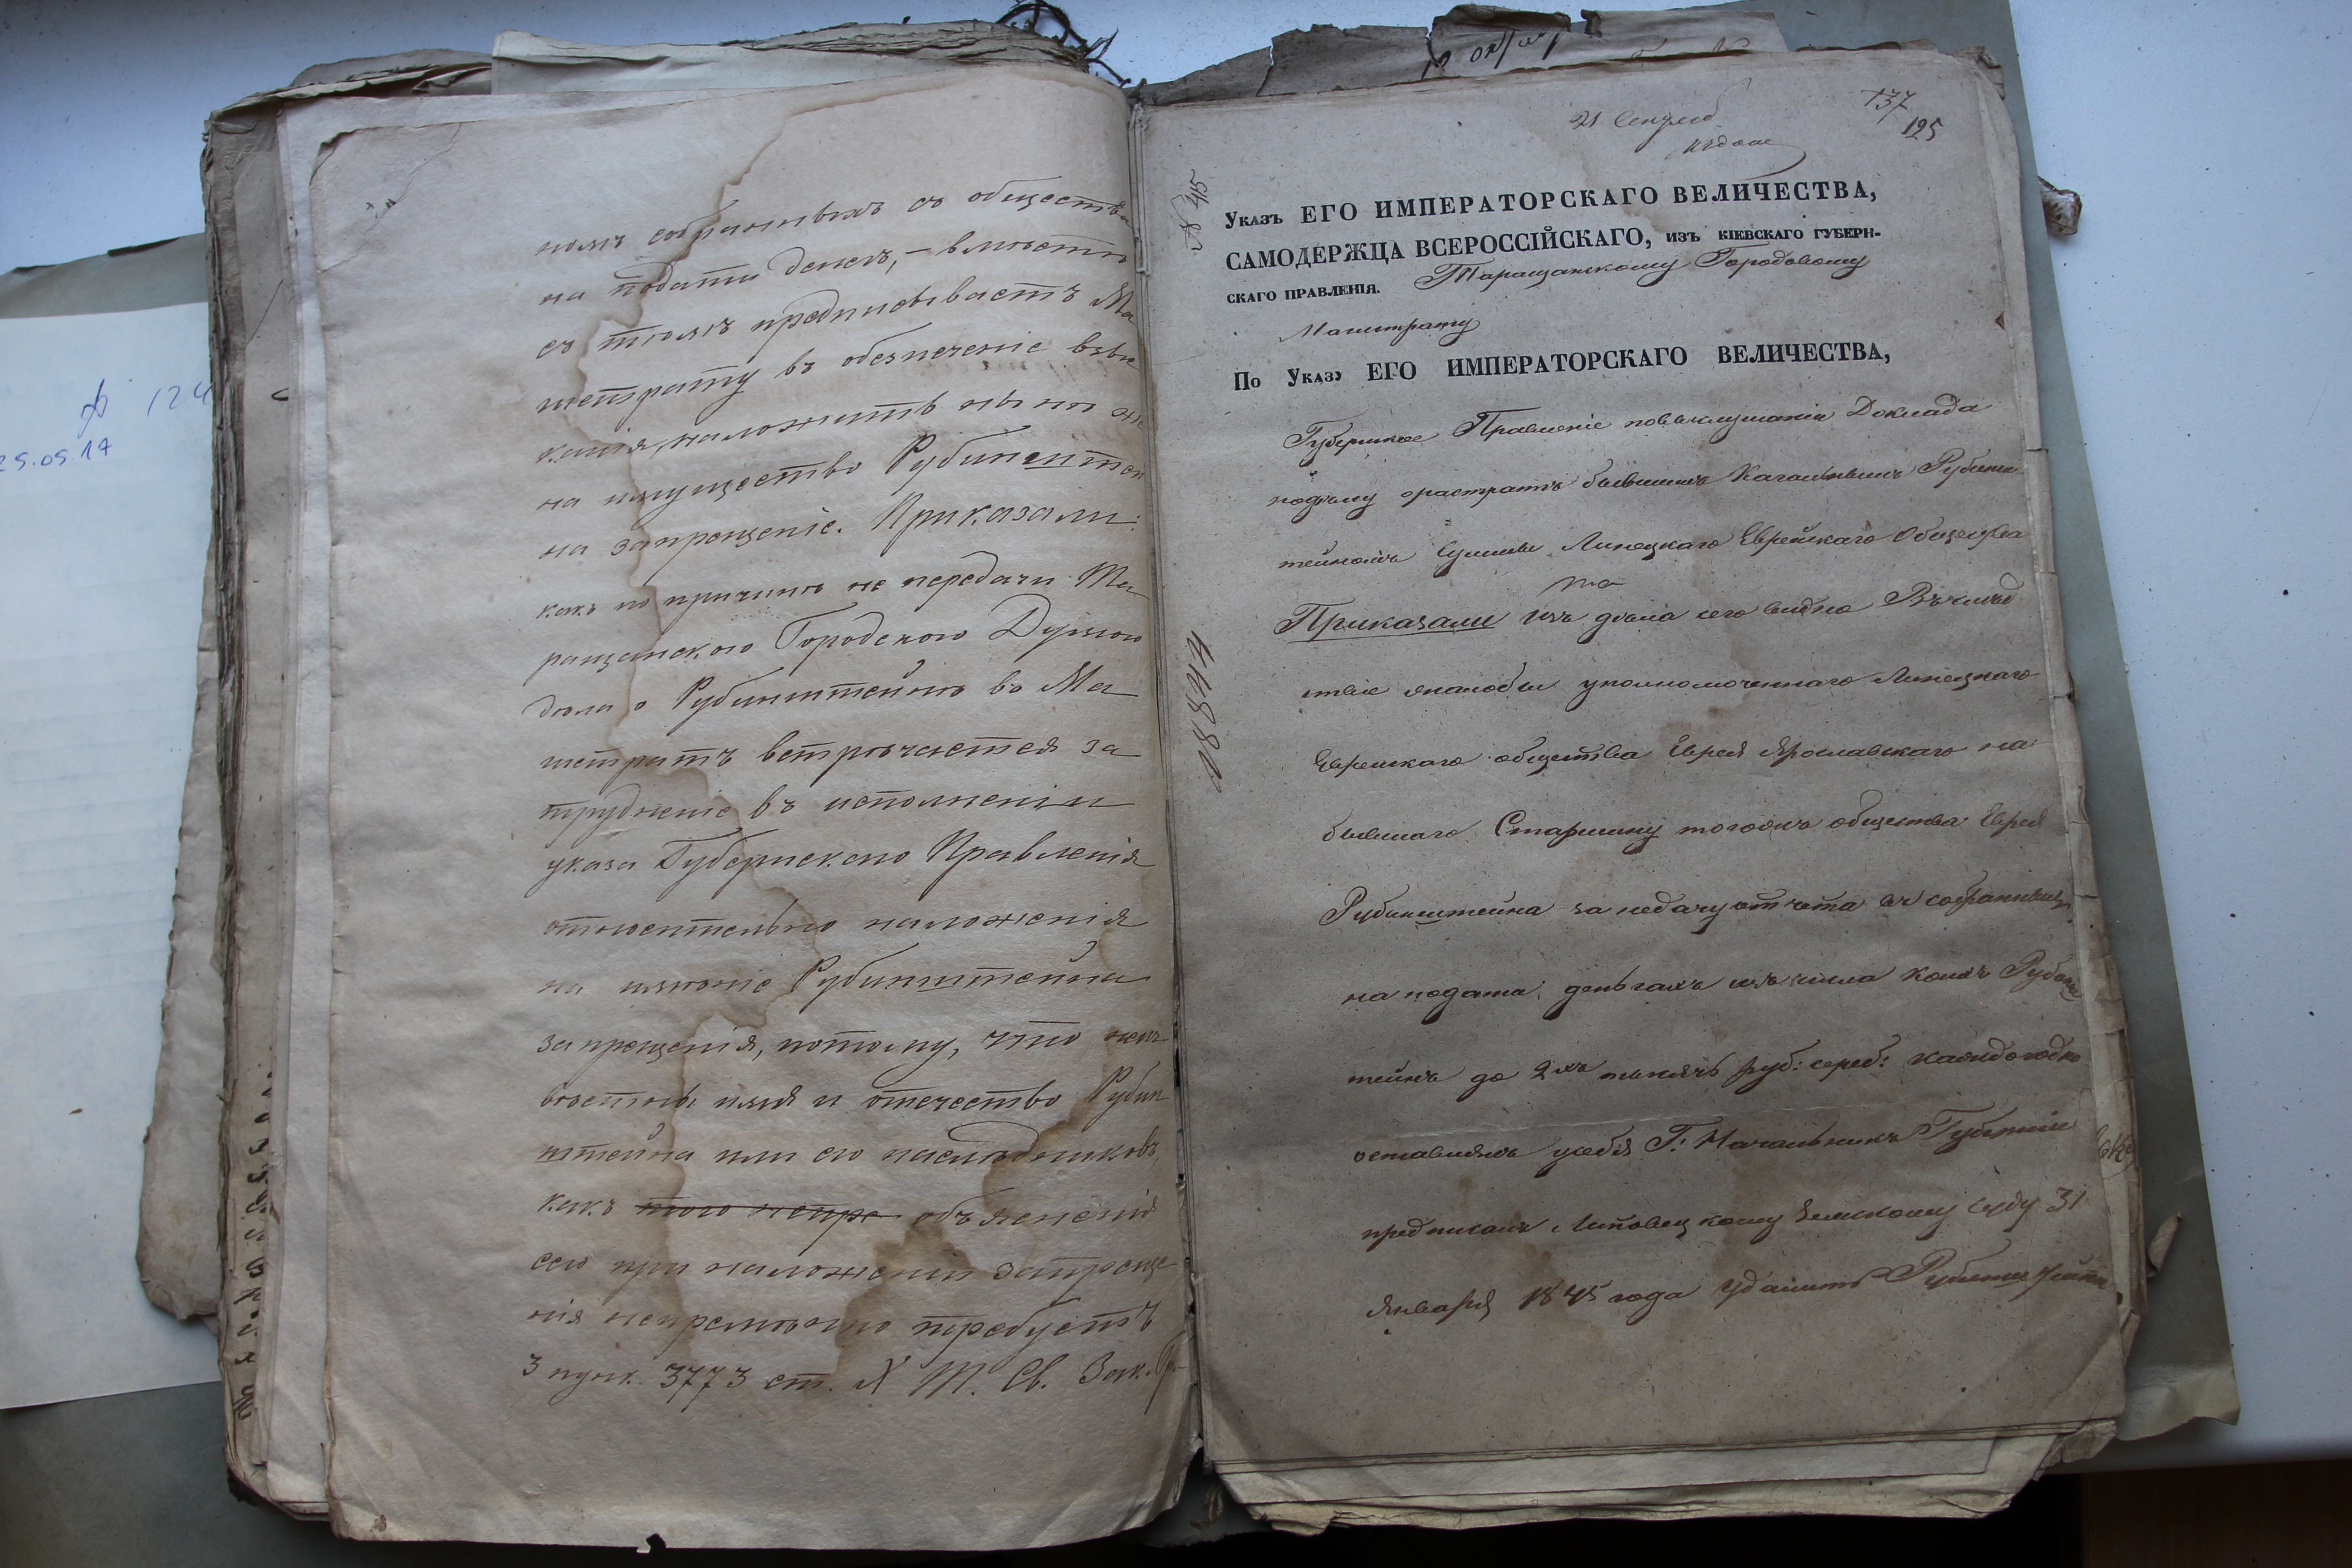 номъ собранныхъ съ общества
на подати денегъ, – вмѣстѣ
съ тѣмъ предписываетъ Ма
гистрату въ обезпеченіе взы
канія, наложить нынѣ же
на имущество Рубинштей
на запрещеніе. Приказали:
какъ по причинѣ не передачи Та
ращанскою Городскою Думою
дѣла о Рубинштейнѣ въ Ма
гистратъ встрѣчается за
трудненіе въ исполненіи
указа Губернскаго Правленія
относительно наложенія
на имѣніе Рубинштейна
запрещенія, потому, что неиз
вѣстны имя и отечество Рубин
штейна или его наслѣдниковъ,
какъ того непре объясненія
сего при наложеніи запреще
нія непремѣнно требуетъ
3 пунк. 3773 ст. X Т. Св. Зак. Гр.
124
25.05.17
21 Сентяб
137
125
45
44844
Указъ ЕГО ИМПЕРАТОРСКАГО ВЕЛИЧЕСТВА,
САМОДЕРЖЦА ВСЕРОССІЙСКАГО, изъ КІЕВСКАГО ГУБЕРН-
СКАГО ПРАВЛЕНІЯ. Таращанскому Городовому
Магистрату
По Указу ЕГО ИМПЕРАТОРСКАГО ВЕЛИЧЕСТВА,
Губернское Правленіе повыслушаніи Доклада
подѣлу орастратѣ бывшимъ Кагальнымъ Рубинш
тейномъ Суммы Линецкаго Еврейскаго Общества
Приказали Изъ дѣла сего видно Въ слѣд
ствіе жалобы уполномоченнаго Линецкаго
Еврейскаго общества Еврея Ярославскаго на
бывшаго Старшину тогожъ общества Еврея
Рубинштейна за недачу отчета въ собранныхъ
на подати деньгахъ изъ числа коихъ Рубинш
тейнъ до 2хъ тысячъ руб: сереб: каждогодно
оставлялъ усебя Г: Начальникъ Губерніи
предписалъ Липовецкому Земскому Суду 31
Января 1845 года удалить Рубинштейна